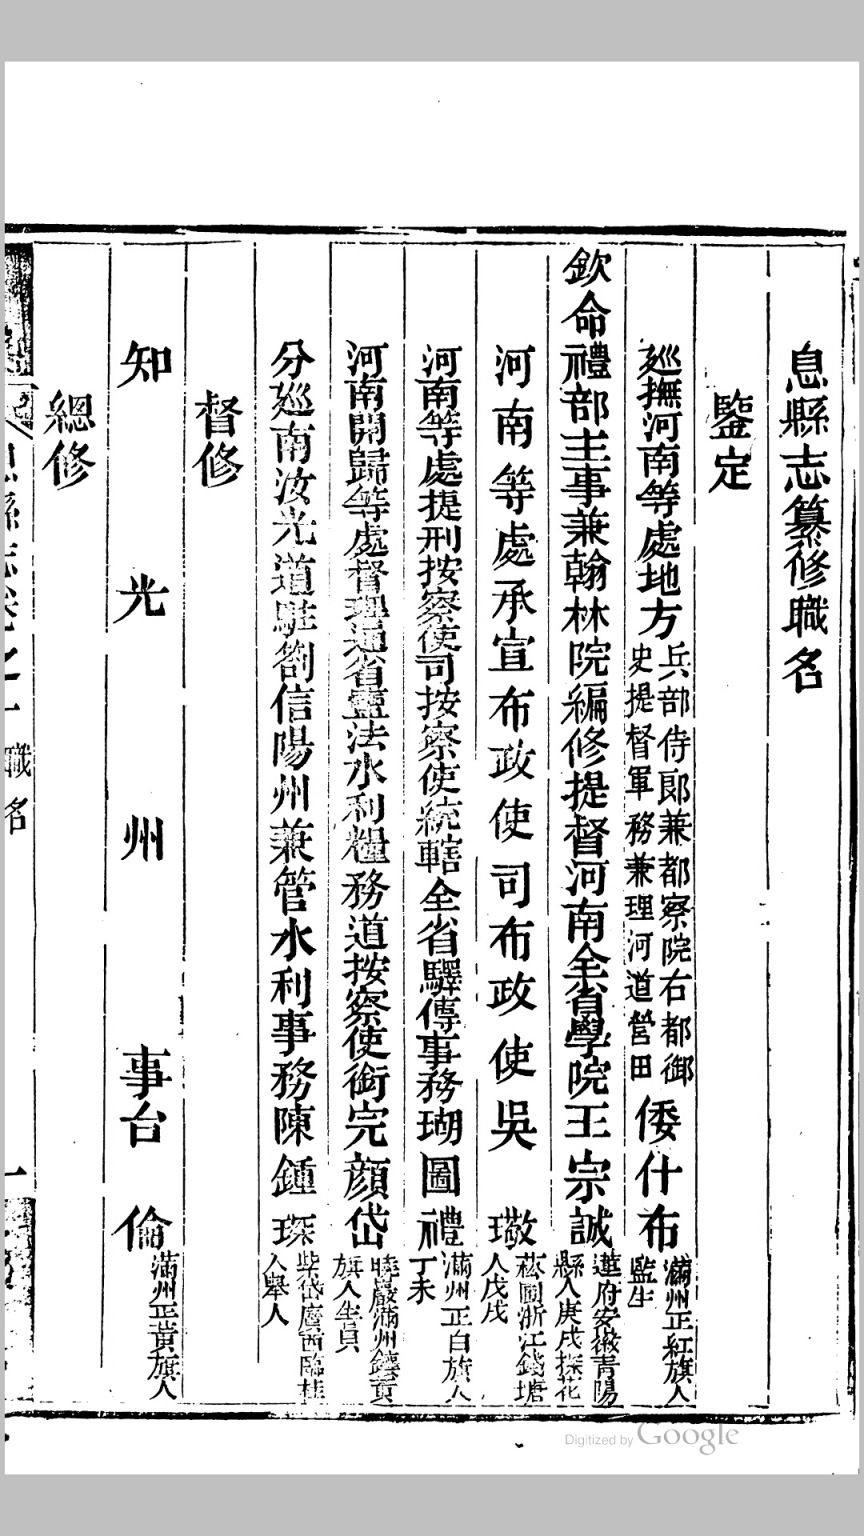 息縣志纂修職名
鑒定
廵撫河南等處地方兵部侍郞兼都察院右都御史提督軍務兼理河道營田倭什布滿州正紅旗人監生
欽命禮部主事兼翰林院編修提督河南全省學院王宗誠蓮府安徽青陽縣人庚戌探花
河南等處承宣布政使司布政使吳璥菘圃浙江錢塘人戊戌
河南等處提刑按察使司按察使統轄全省驛傳事務瑚圖禮滿州正白旗人丁未
河南開歸等處督理通省鹽法水利糧務道按察使銜完顏岱曉巖滿州鑲黃旗人生員
分廵南汝光道駐劄信陽州兼管水利事務陳鍾琛紫岱廣西臨桂人舉人
督修
知光州事台倫滿州正黃旗人
總修
息縣志卷之一 職名 一
Digitized by Google